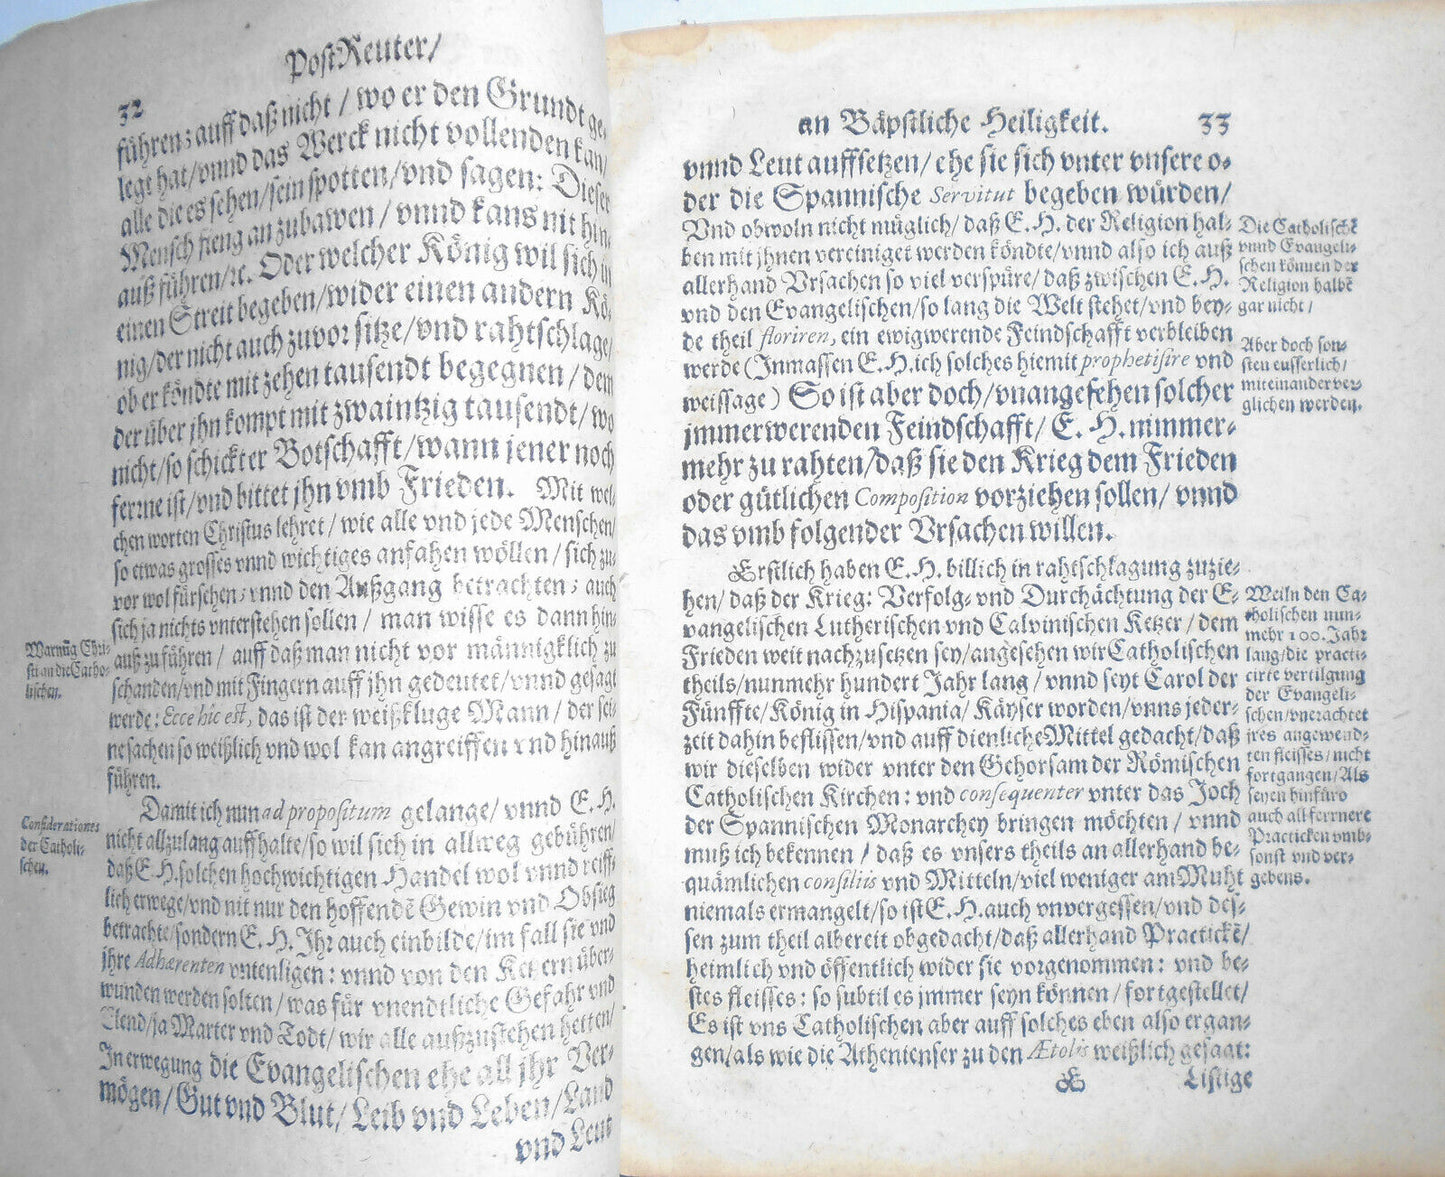 PostReuter/
32
führen; auff daß nicht / wo er den Grundt ge-
legt hat/vnnd das Werck nicht vollenden kan/
alle die es sehen/sein spotten/vnd sagen: Dieser
Mensch fieng an zubawen/vnnd kans nit hin-
auß führen/ꝛc. Oder welcher König wil sich in
einen Streit begeben/wider einen andern Kö-
nig/der nicht auch zuvor sitze/vnd rahtschlage/
ob er köndte mit zehen tausendt begegnen/dem
der über jhn kompt mit zwaintzig tausendt/wo
nicht/so schickter Botschafft/wann jener noch
ferrne ist/vnd bittet jhn vmb Frieden. Mit wel-
chen worten Christus lehret/wie alle vnd jede Menschen/
so etwas grosses vnnd wichtiges anfahen wöllen/sich zu-
vor wol fürsehen; vnnd den Außgang betrachten; auch
sich ja nichts vnterstehen sollen/man wisse es dann hin-
auß zu führen/auff daß man nicht vor männigklich zu
schanden/vnd mit Fingern auff jhn gedeutet/vnnd gesagt
werde: Ecce hîc est, das ist der weißkluge Mann/der sei-
ne sachen so weißlich vnd wol kan angreiffen vnd hinauß
führen.
Warnūg Chri-
sti an die Catho-
lischen.
Damit ich nun ad propositum gelange/vnnd E. H.
nicht allzulang auffhalte/so wil sich in allweg gebühren/
daß E. H. solchen hochwichtigen Handel wol vnnd reiff-
lich erwege/vnd nit nur den hoffendē Gewin vnd Obsieg
betrachte/sondern E. H. Jhr auch einbilde/im fall sie vnd
jhre Adhærenten vntenligen: vnnd von den Ketzern über-
wunden werden solten/was für vnendtliche Gefahr vnd
Elend/ja Marter vnd Todt/wir alle außzustehen hetten/
In erwegung die Evangelischen ehe all jhr Ver-
mögen/Gut vnd Blut/Leib vnd Leben/Land
vnd Leut
Considerationes
der Catholi-
schen.
an Bäpstliche Heiligkeit. 33
vnnd Leut auffsetzen/ehe sie sich vnter vnsere o-
der die Spannische Servitut begeben würden/
Vnd obwoln nicht müglich/daß E. H. der Religion hal-
ben mit jhnen vereiniget werden köndte/vnnd also ich auß
allerhand Vrsachen so viel verspüre/daß zwischen E. H.
vnd den Evangelischen/so lang die Welt stehet/vnd bey-
de theil floriren, ein ewigwerende Feindschafft verbleiben
werde (Inmassen E. H. ich solches hiemit prophetisire vnd
weissage) So ist aber doch/vnangesehen solcher
jmmerwerenden Feindschafft/E. H. nimmer-
mehr zu rahten/daß sie den Krieg dem Frieden
oder gütlichen Composition vorziehen sollen/vnnd
das vmb folgender Vrsachen willen.
Die Catholischē
vnnd Evangeli-
schen können der
Religion halbē
gar nicht/
Aber doch son-
sten eusserlich/
miteinander ver-
glichen werden.
Erstlich haben E. H. billich in rahtschlagung zuzie-
hen/daß der Krieg: Verfolg- vnd Durchächtung der E-
vangelischen Lutherischen vnd Calvinischen Ketzer/dem
Frieden weit nachzusetzen sey/angesehen wir Catholischen
theils/nunmehr hundert Jahr lang/vnnd seyt Carol der
Fünffte/König in Hispania/Käyser worden/vnns jeder-
zeit dahin beflissen/vnd auff dienliche Mittel gedacht/daß
wir dieselben wider vnter den Gehorsam der Römischen
Catholischen Kirchen: vnd consequenter vnter das Joch
der Spannischen Monarchey bringen möchten/vnnd
muß ich bekennen/daß es vnsers theils an allerhand be-
quämlichen consiliis vnd Mitteln/viel weniger am Muht
niemals ermangelt/so ist E. H. auch vnvergessen/vnd des-
sen zum theil albereit obgedacht/daß allerhand Practickē/
heimlich vnd öffentlich wider sie vorgenommen: vnd be-
stes fleisses: so subtil es jmmer seyn können/fortgestellet/
Es ist vns Catholischen aber auff solches eben also ergan-
gen/als wie die Athenienser zu den Ætolis weißlich gesagt:
E Listige
Weiln den Ca-
tholischen nun-
mehr 100. Jahr
lang/die practi-
cirte vertilgung
der Evangeli-
schen/vnerachtet
jres angewend-
ten fleisses/nicht
fortgangen/Als
seyen hinfüro
auch all fernere
Practicken vmb-
sonst vnd ver-
gebens.